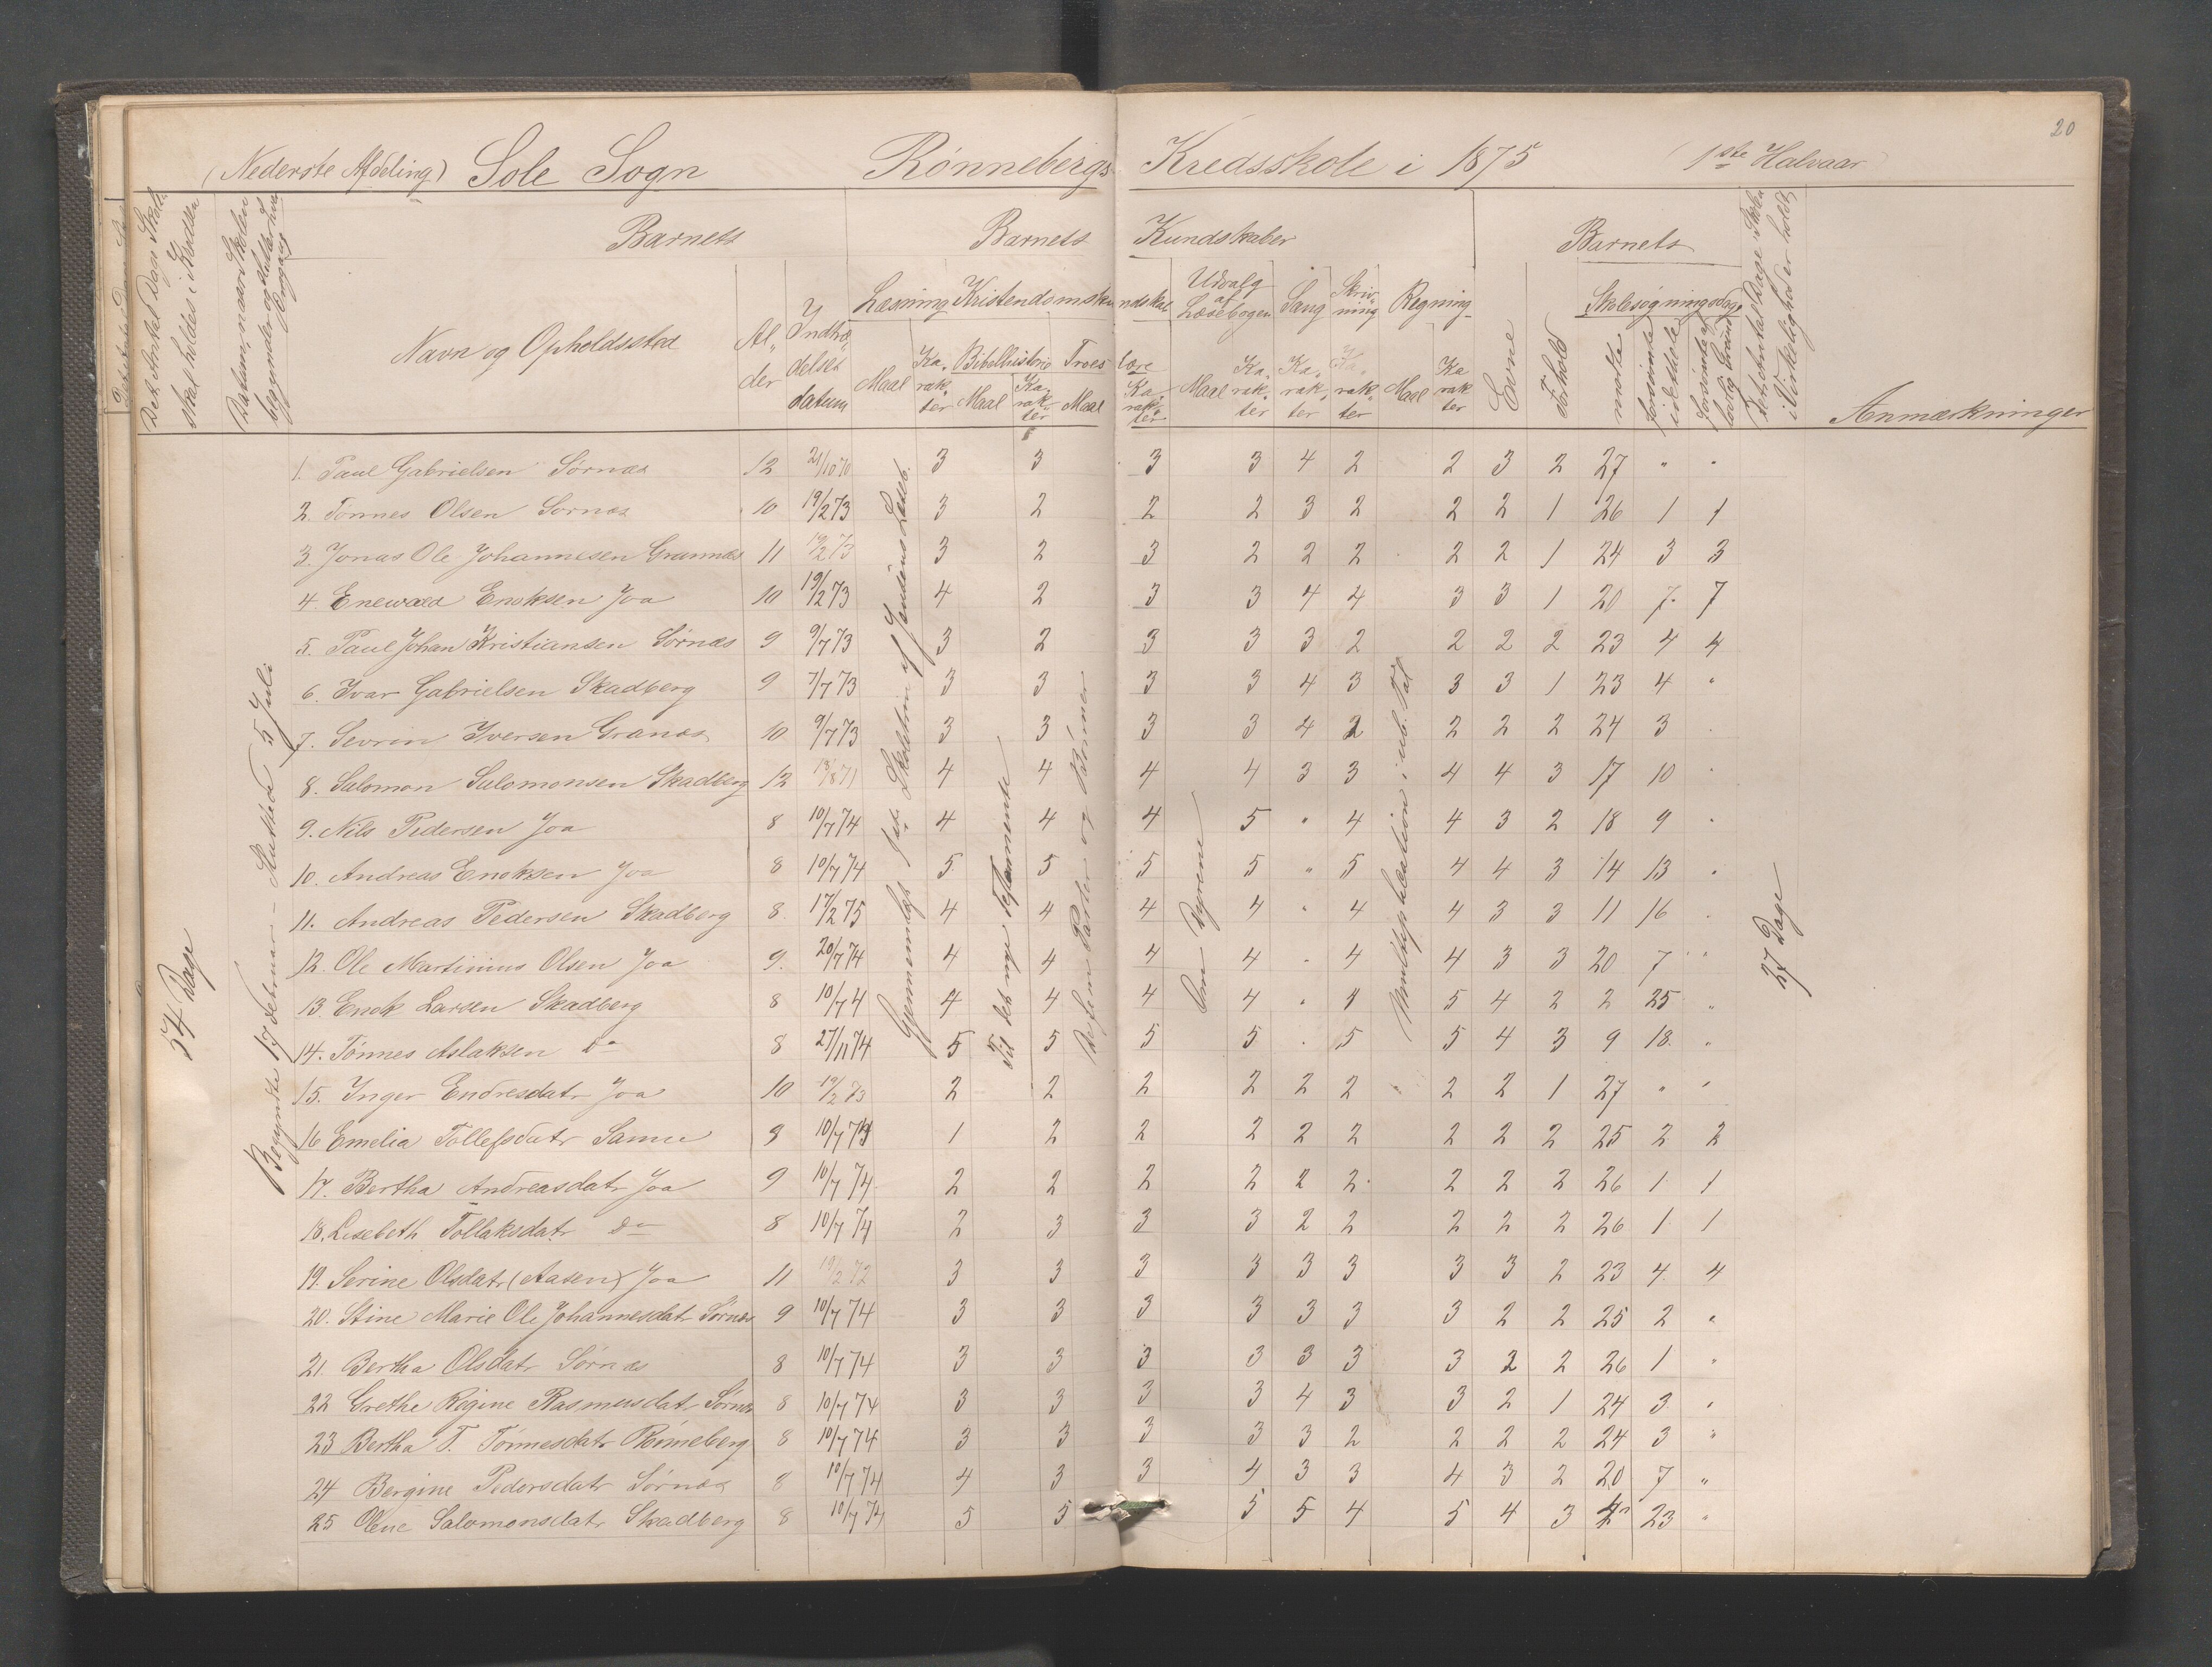 20
(Nederste Afdeling) Sole Sogn Rønnebergs Kredsskole i 1875 (1ste Halvaar)
Det Antal Dage Skole skal holdes i Kredsen
Datum, naar Skolen begynder og slutter hver Omgang
Barnets
Barnets Kundskaber
Barnets
Det Antal Dage Skolen i Virkelighed er holdt
Anmærkninger
Navn og Opholdssted
Alder
Indtrædelses datum
Læsning
Kristendomskundskab
Udvalg af Læsebogen
Sang
Skrivning
Regning
Evne
Forhold
Skolesøgningsdage
Maal Karakter
Bibelhistorie Troeslære
Maal Karakter Maal Karakter
Maal Karakter Karakter Karakter Maal Karakter
mødte
forsømte i det Hele
forsømte af lovlig Grund
54 Dage
Begyndte 17 Februar - Slutted 5 Juli
Til det nye Testamente
De fem Parter og Bønner
Om Dyrene
Multiplikation i ub. Tal
27 Dage
1. Paul Gabrielsen Sørnæs 12 21/10 70 3 3 3 3 4 2 2 3 2 27 " "
2. Tønnes Olsen Sørnæs 10 19/2 73 3 2 2 2 3 2 2 2 1 26 1 1
3. Jonas Ole Johannesen Grannæs 11 19/2 73 3 2 3 2 2 2 2 2 1 24 3 3
4. Enewald Enoksen Joa 10 19/2 73 4 2 3 3 4 4 3 3 1 20 7 7
5. Paul Johan Kristiansen Sørnæs 9 9/7 73 3 2 3 3 3 2 2 2 2 23 4 4
6. Ivar Gabrielsen Skadberg 9 7/7 73 3 3 3 3 4 3 3 3 1 23 4 "
7. Sevrin Iversen Granæs 10 9/7 73 3 3 3 3 4 2 2 2 2 24 3 "
8. Salomon Salomonsen Skadberg 12 18/8 71 4 4 4 4 3 3 4 4 3 17 10 "
9. Nils Pedersen Joa 8 10/7 74 4 4 4 5 " 4 4 3 2 18 9 "
10. Andreas Enoksen Joa 8 10/7 74 5 5 5 5 " 5 4 4 3 14 13 "
11. Andreas Pedersen Skadberg 8 17/2 75 4 4 4 4 " 4 4 3 3 11 16 "
12. Ole Martinius Olsen Joa 9 20/7 74 4 4 4 4 " 4 4 3 3 20 7 "
13. Enok Larsen Skadberg 8 10/7 4 4 4 4 4 " 4 5 4 2 2 25 "
14. Tønnes Aslaksen Do 8 27/11 74 5 5 5 5 " 5 5 4 3 9 18 "
15. Inger Endresdatr Joa 10 19/2 73 2 2 2 2 2 2 2 2 1 27 " "
16 Emelia Tollefsdatr Sømme 9 10/7 74 1 2 2 2 2 2 2 2 2 25 2 2
17. Bertha Andreasdatr Joa 9 10/7 74 2 2 2 2 2 2 2 2 2 26 1 1
18. Lisebeth Tollaksdatr Do 8 10/7 74 2 3 3 3 2 2 2 2 2 26 1 1
19. Serine Olsdatr (Aasen) Joa 11 19/2 72 3 3 3 3 3 3 3 3 2 23 4 4
20. Stine Marie Ole Johannesdatr Sørnæs 9 10/7 74 3 3 3 3 3 3 3 2 2 25 2 "
21. Bertha Olsdatr Sørnæs 8 10/7 74 3 3 3 3 3 3 3 2 2 26 1 "
22 Grethe Regine Rasmusdatr Sørnæs 8 10/7 74 3 3 3 3 4 3 3 2 1 24 3 "
23 Bertha T. Tønnesdatr Rønneberg 8 10/7 74 3 3 3 3 3 2 2 2 2 24 3 "
24 Bergine Pedersdatr Sørnæs 8 10/7 74 4 3 3 4 3 3 4 3 2 20 7 "
25 Olene Salomonsdatr Skadberg 8 10/7 74 5 5 5 5 4 5 4 3 4 23 "